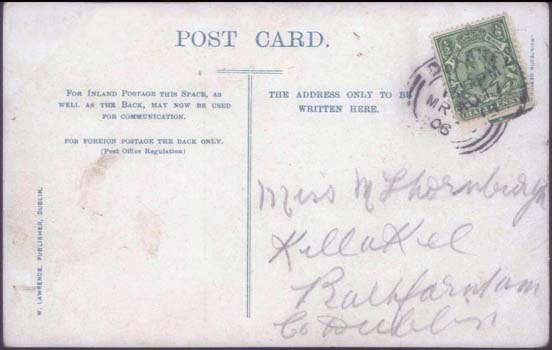 POST CARD.
FOR INLAND POSTAGE THIS SPACE, AS
WELL AS THE BACK, MAY NOW BE USED
FOR COMMUNICATION.
FOR FOREIGN POSTAGE THE BACK ONLY.
(Post Office Regulation)
THE ADDRESS ONLY TO BE
WRITTEN HERE.
W. LAWRENCE, PUBLISHER, DUBLIN.
HALFPENNY
MR
06
Miss M Thornburgh
Killakee
Rathfarnham
Co Dublin